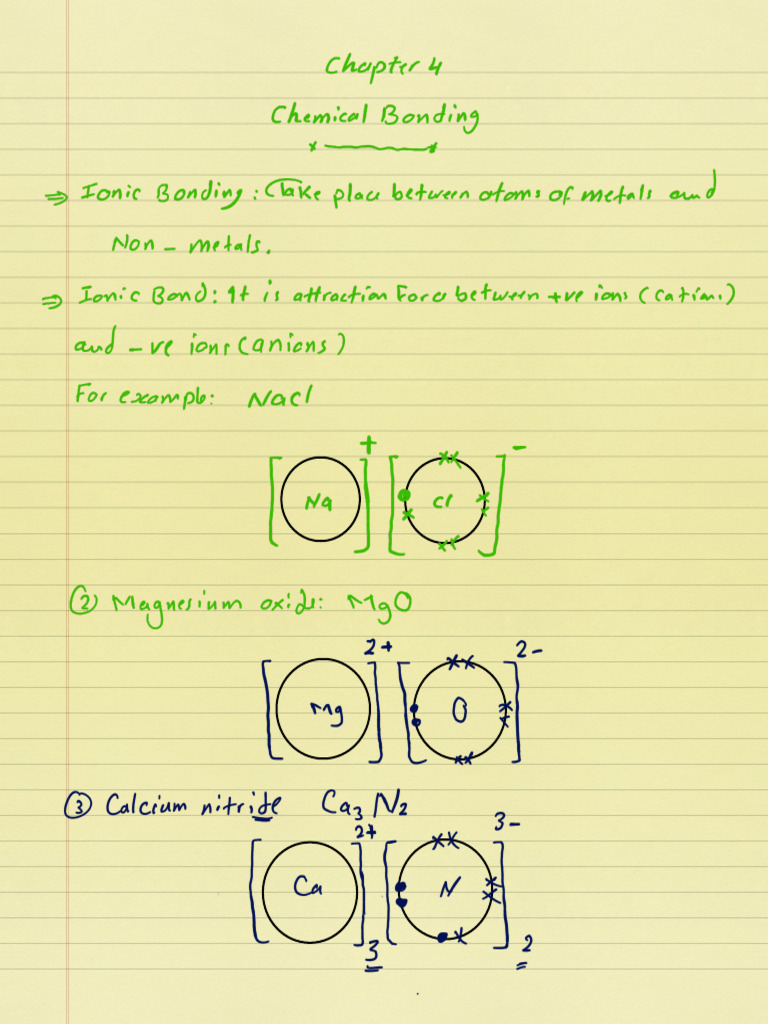 Chapter 4
Chemical Bonding
⇒ Ionic Bonding: (Take place between atoms of metals and
Non - metals.
⇒ Ionic Bond: It is attraction Force between +ve ions (cations)
and -ve ions (anions)
For example: NaCl
[Na]+ [Cl]-
② Magnesium oxide: MgO
[Mg]2+ [O]2-
③ Calcium nitride Ca3N2
[Ca]2+3 [N]3-2